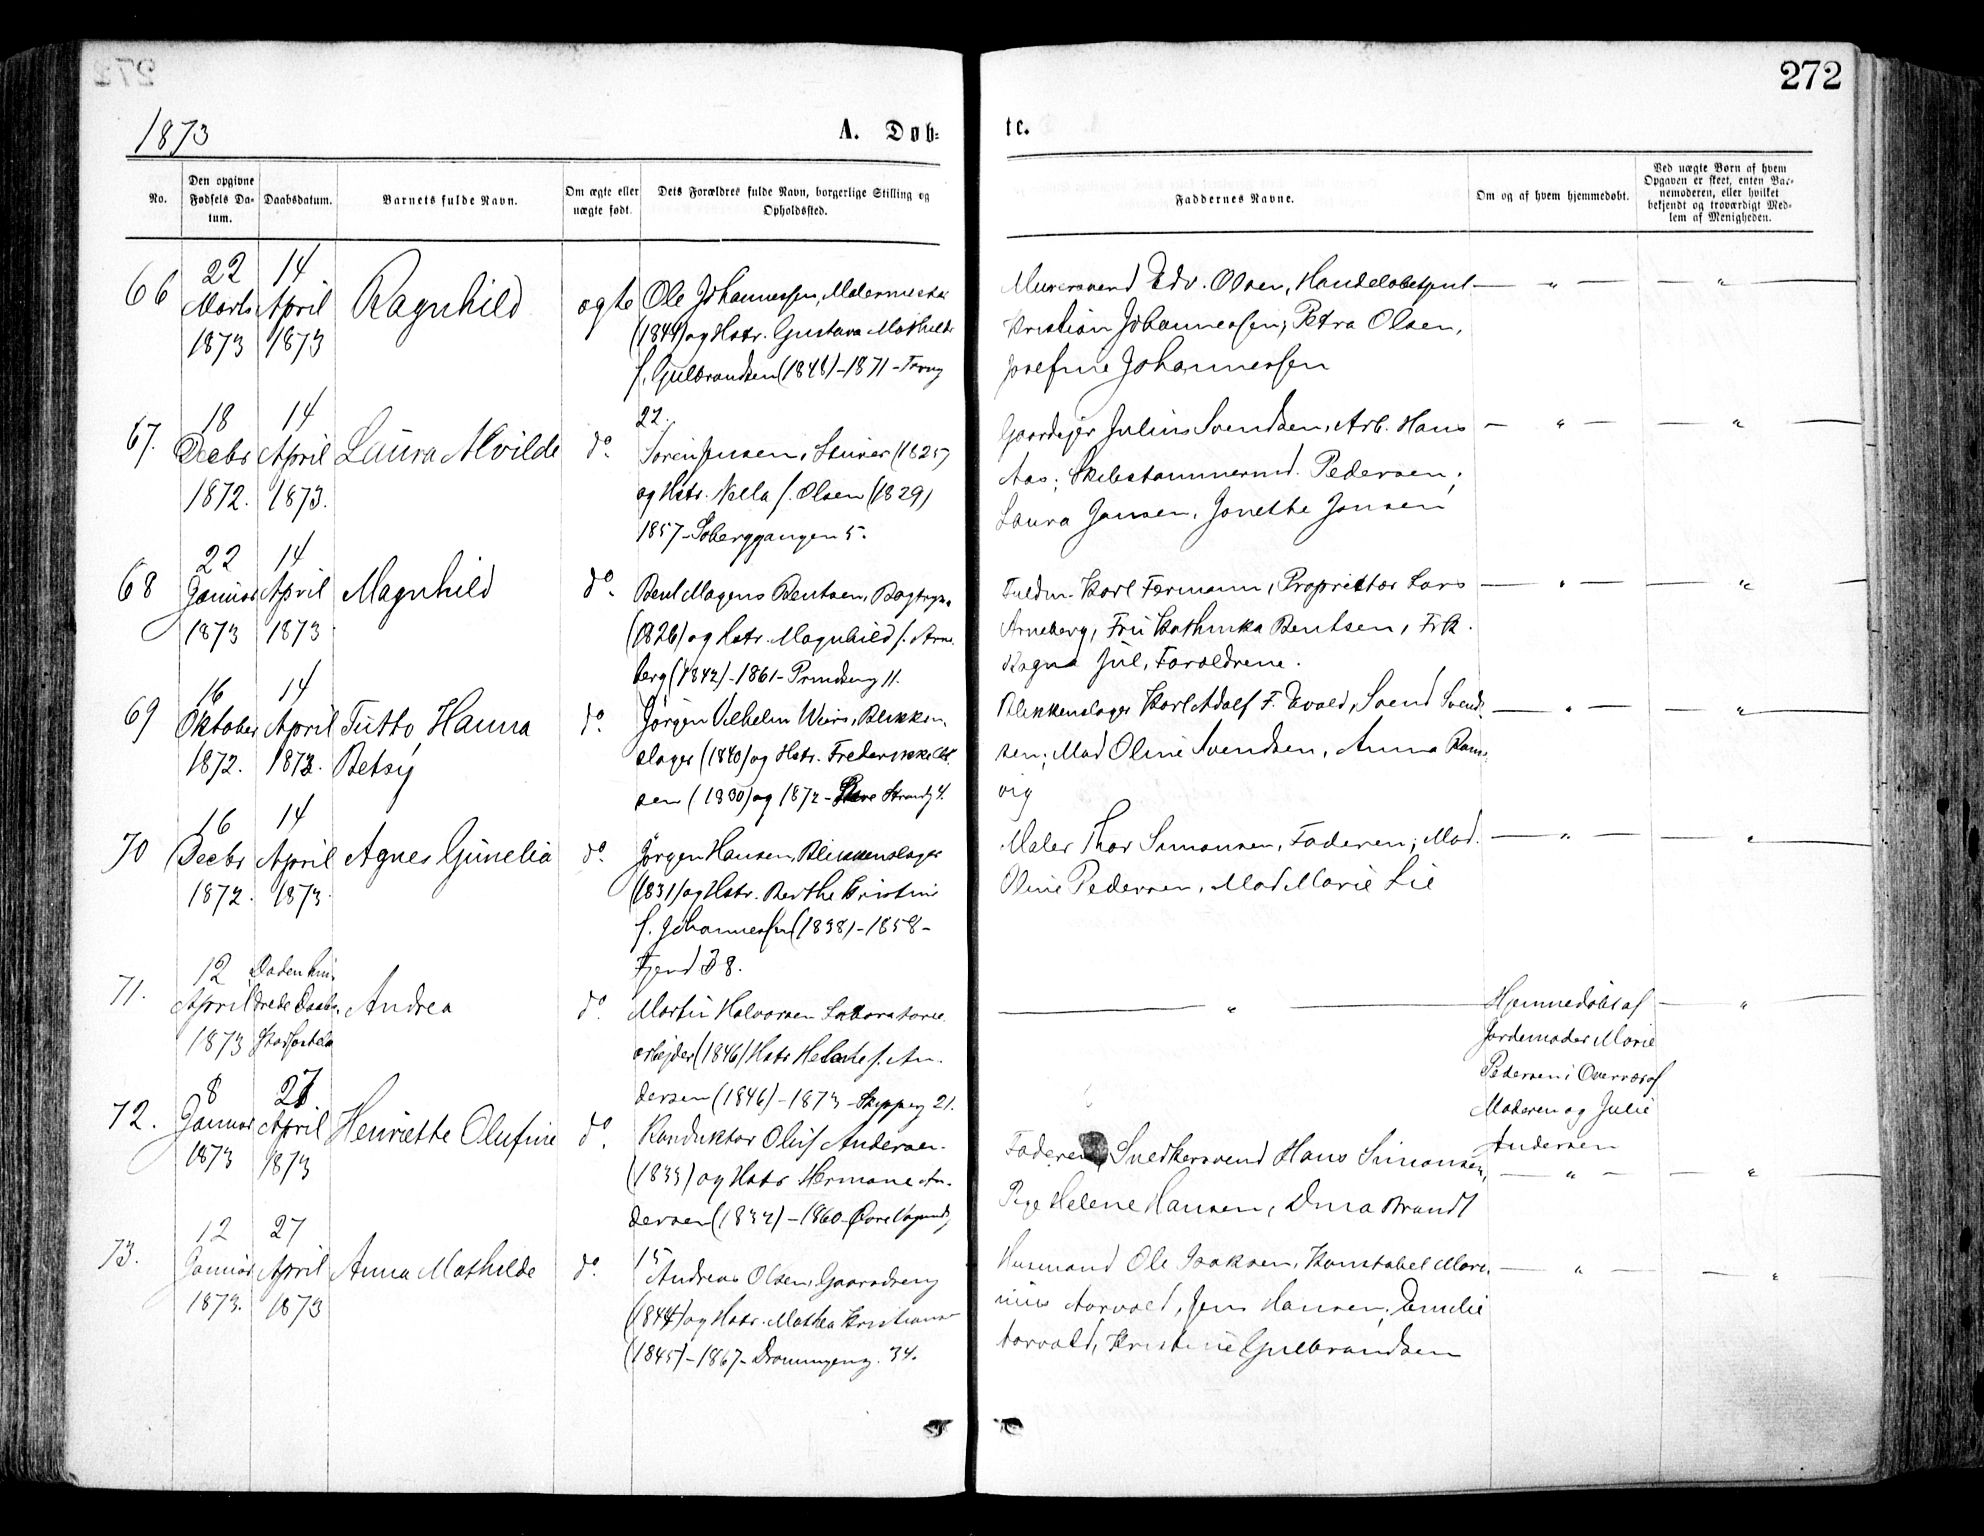 272
1873
A. Døb-
te.
No.
Den opgivne Fødsels Datum.
Daabsdatum.
Barnets fulde Navn.
Om ægte eller uægte født.
Dets Forældres fulde Navn, borgerlige Stilling og Opholdssted.
Faddernes Navne.
Om og af hvem hjemmedøbt.
Ved uægte Børn af hvem Opgaven er skeet, enten Barnemoderen, eller hvilket bekjendt og troværdigt Medlem af Menigheden.
66
22 Marts 1873
14 April 1873
Ragnhild
ægte
Ole Johannessen, Malermester
(1844) og Hstr. Gustava Mathilde
f. Gulbrandsen (1848) - 1871 -
22.
Murersvend Edv. Olsen, Handelsbetjent
Kristian Johannessen; Petra Olsen,
Josefine Johannessen
67.
18 Decbr 1872.
14 April 1873.
Laura Alvilde
do.
Søren Jensen, (1825)
og Hstr. f. Olsen (1829)
1857 - 5.
Gaardejer Julius Svendsen, Arb. Hans
Aas; Skibstømmermd. Pedersen;
Laura Jansen, Jonette Jonsen
68
22 Januar 1873
14 April 1873
Magnhild
do.
Bent Magens Bentsen, Bogtryk.
(1826) og Hstr. Magnhild f. Arne
berg (1842) - 1861 - Prindseng 11.
Fuldm. Karl Fermann, Proprietær Lars
Arneberg, Fru Kathinka Bentsen, Frk.
Ragna Jul, Forældrene.
69
16 Oktober 1872.
14 April 1873.
Tutto, Hanna
Betsy
do.
Jørgen Vilhelm Weirs, Blikken-
slager (1840) og Hstr. Frederikke
sen (1830) og 1872 - Strandg 4.
Blikkenslager Karl Adolf F. Evald, Svend Svend-
sen; Mad Oline Svendsen, Anna Rams-
vig
70
16 Decbr 1872.
14 April 1873.
Agnes Gunelia
do.
Jørgen Hansen, Blikkenslager
(1831) og Hstr. Berthe Kristine
f. Johannessen (1838) - 1858 -
Fjerd 38.
Maler Thor Simonsen, Faderen; Mad.
Oline Pedersen, Mad Marie Lie
71.
12 April 1873
Døden hin-
drede Daabs-
Andrea
do.
Martin Halvorsen Laboratorie
arbejder (1846) Hstr f. An-
dersen (1846) - 1873 - 21.
Hjemmedøbt af
Jordemoder Marie
Pedersen i Overvær af
Moderen og Julie
Andersen
72.
8 Januar 1873
27 April 1873
Henriette Olufine
do.
Konduktør Oluf Andersen
(1833) og Hstr Hermane An-
dersen (1832) - 1860 -
15
Faderen, Snedkersvend Hans Simonsen,
Pige Helene Hansen, Brandt
73.
12 Januar 1873.
27 April 1873
Anna Mathilde
do.
Andreas Olsen, Gaardsdreng
(1844) og Hstr. Mathea Kristians-
(1845) - 1867 - Dronningeng. 34.
Husmand Ole Isaksen, Konstabel Mari-
nius Aarvold, Jens Hansen; Emilie
Aarvold, Kristine Gulbrandsen